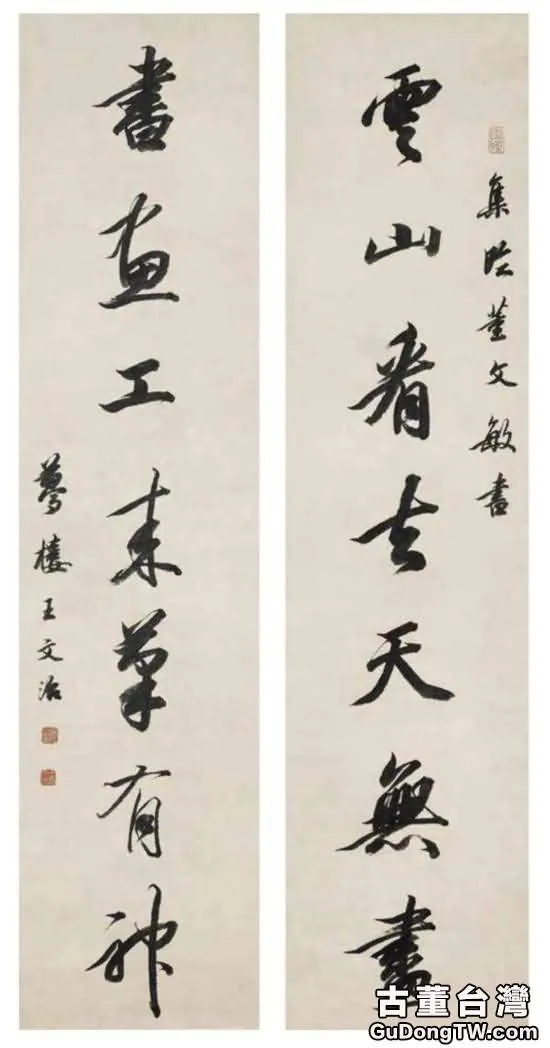 集臨董文敏書
雲山看去天無盡
書畫工來筆有神
夢樓王文治
古董台灣
GuDongTW.com